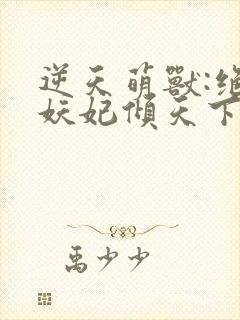 逆天萌獸:絕
妖妃傾天下
禹少少